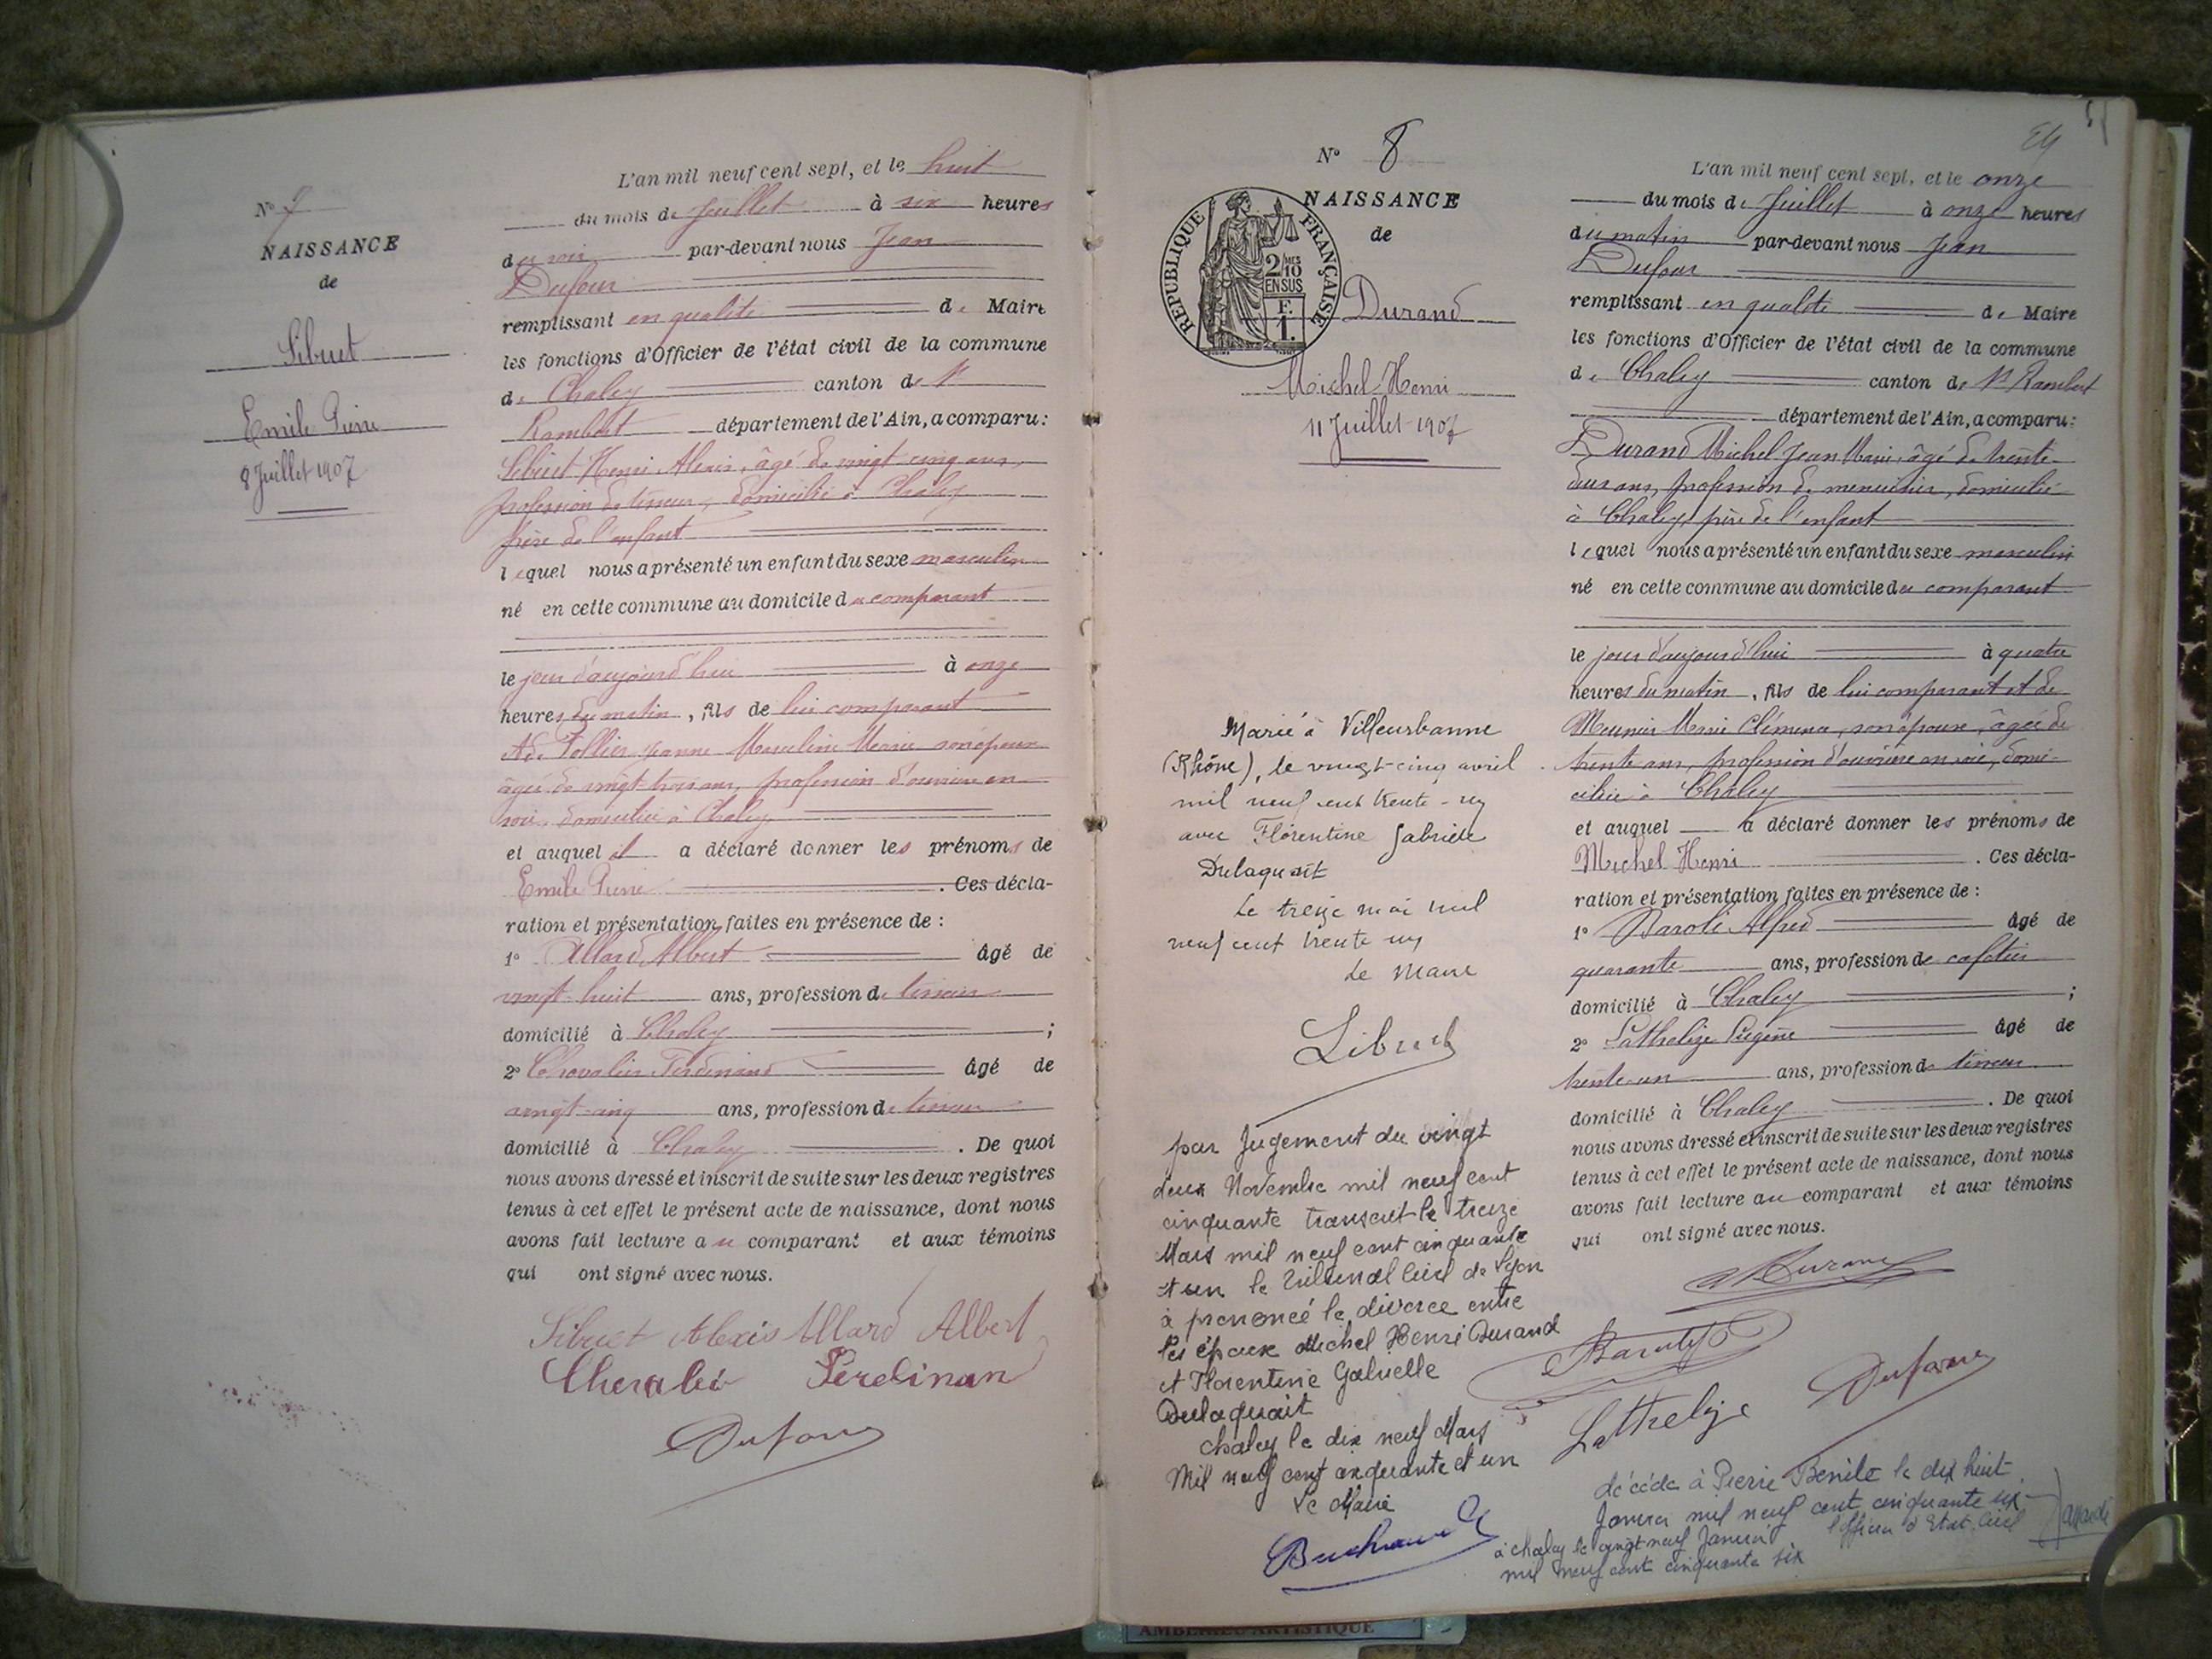 N° 7
NAISSANCE
de
Sibuet
Emile Pierre
8 Juillet 1907
L'an mil neuf cent sept, et le huit
du mois de Juillet à six heures
du soir par-devant nous Jean
Dufour
remplissant en qualité de Maire
les fonctions d'Officier de l'état civil de la commune
de Chaley canton de St
Rambert département de l'Ain, a comparu :
Sibuet Henri Alexis, âgé de vingt cinq ans,
profession de tisseur, domicilié à Chaley
père de l'enfant
lequel nous a présenté un enfant du sexe masculin
né en cette commune au domicile du comparant
le jour d'aujourd'hui à onze
heures du matin, fils de lui comparant
et de Tollier Jeanne Marceline Marie son épouse
âgée de vingt-trois ans, profession d'ouvrière en
soie, domiciliée à Chaley
et auquel il a déclaré donner les prénoms de
Emile Pierre. Ces décla-
ration et présentation faites en présence de :
1° Allard Albert âgé de
vingt-huit ans, profession de tisseur
domicilié à Chaley ;
2° Chevalier Ferdinand âgé de
vingt-cinq ans, profession de tisseur
domicilié à Chaley. De quoi
nous avons dressé et inscrit de suite sur les deux registres
tenus à cet effet le présent acte de naissance, dont nous
avons fait lecture au comparant et aux témoins
qui ont signé avec nous.
Sibuet Alexis Allard Albert
Chevalier Ferdinan
Dufour
N° 8
NAISSANCE
de
REPUBLIQUE FRANÇAISE
2/10 MES
EN SUS
F.
1.
Durand
Michel Henri
11 Juillet 1907
Marié à Villeurbanne
(Rhône), le vingt-cinq avril
mil neuf cent trente-un
avec Florentine Gabrielle
Dulaquait
Le treize mai mil
neuf cent trente un
Le Maire
Sibuet
par Jugement du vingt
deux Novembre mil neuf cent
cinquante transcrit le treize
Mars mil neuf cent cinquante
et un le Tribunal Civil de Lyon
à prononcé le divorce entre
les époux Michel Henri Durand
et Florentine Gabrielle
Dulaquait
Chaley le dix neuf Mars
Mil neuf cent cinquante et un
Le Maire
54
L'an mil neuf cent sept, et le onze
du mois de Juillet à onze heures
du matin par-devant nous Jean
Dufour
remplissant en qualité de Maire
les fonctions d'Officier de l'état civil de la commune
de Chaley canton de St Rambert
département de l'Ain, a comparu :
Durand Michel Jean Marie, âgé de trente-
deux ans, profession de menuisier, domicilié
à Chaley, père de l'enfant
lequel nous a présenté un enfant du sexe masculin
né en cette commune au domicile du comparant
le jour d'aujourd'hui à quatre
heures du matin, fils de lui comparant et de
Meunier Marie Clémence, son épouse, âgée de
trente ans, profession d'ouvrière en soie, domi-
ciliée à Chaley
et auquel a déclaré donner les prénoms de
Michel Henri. Ces décla-
ration et présentation faites en présence de :
1° Baroli Alfred âgé de
quarante ans, profession de cafetier
domicilié à Chaley ;
2° Lathelize Eugène âgé de
trente-un ans, profession de tisseur
domicilié à Chaley. De quoi
nous avons dressé et inscrit de suite sur les deux registres
tenus à cet effet le présent acte de naissance, dont nous
avons fait lecture au comparant et aux témoins
qui ont signé avec nous.
Durand
Lathelize Dufour
décédé à Pierre Bénite le dix huit
Janvier mil neuf cent cinquante six
à chaley le vingt neuf Janvier l'officier d'Etat Civil
mil neuf cent cinquante six
AMBERIEU ARTISTIQUE